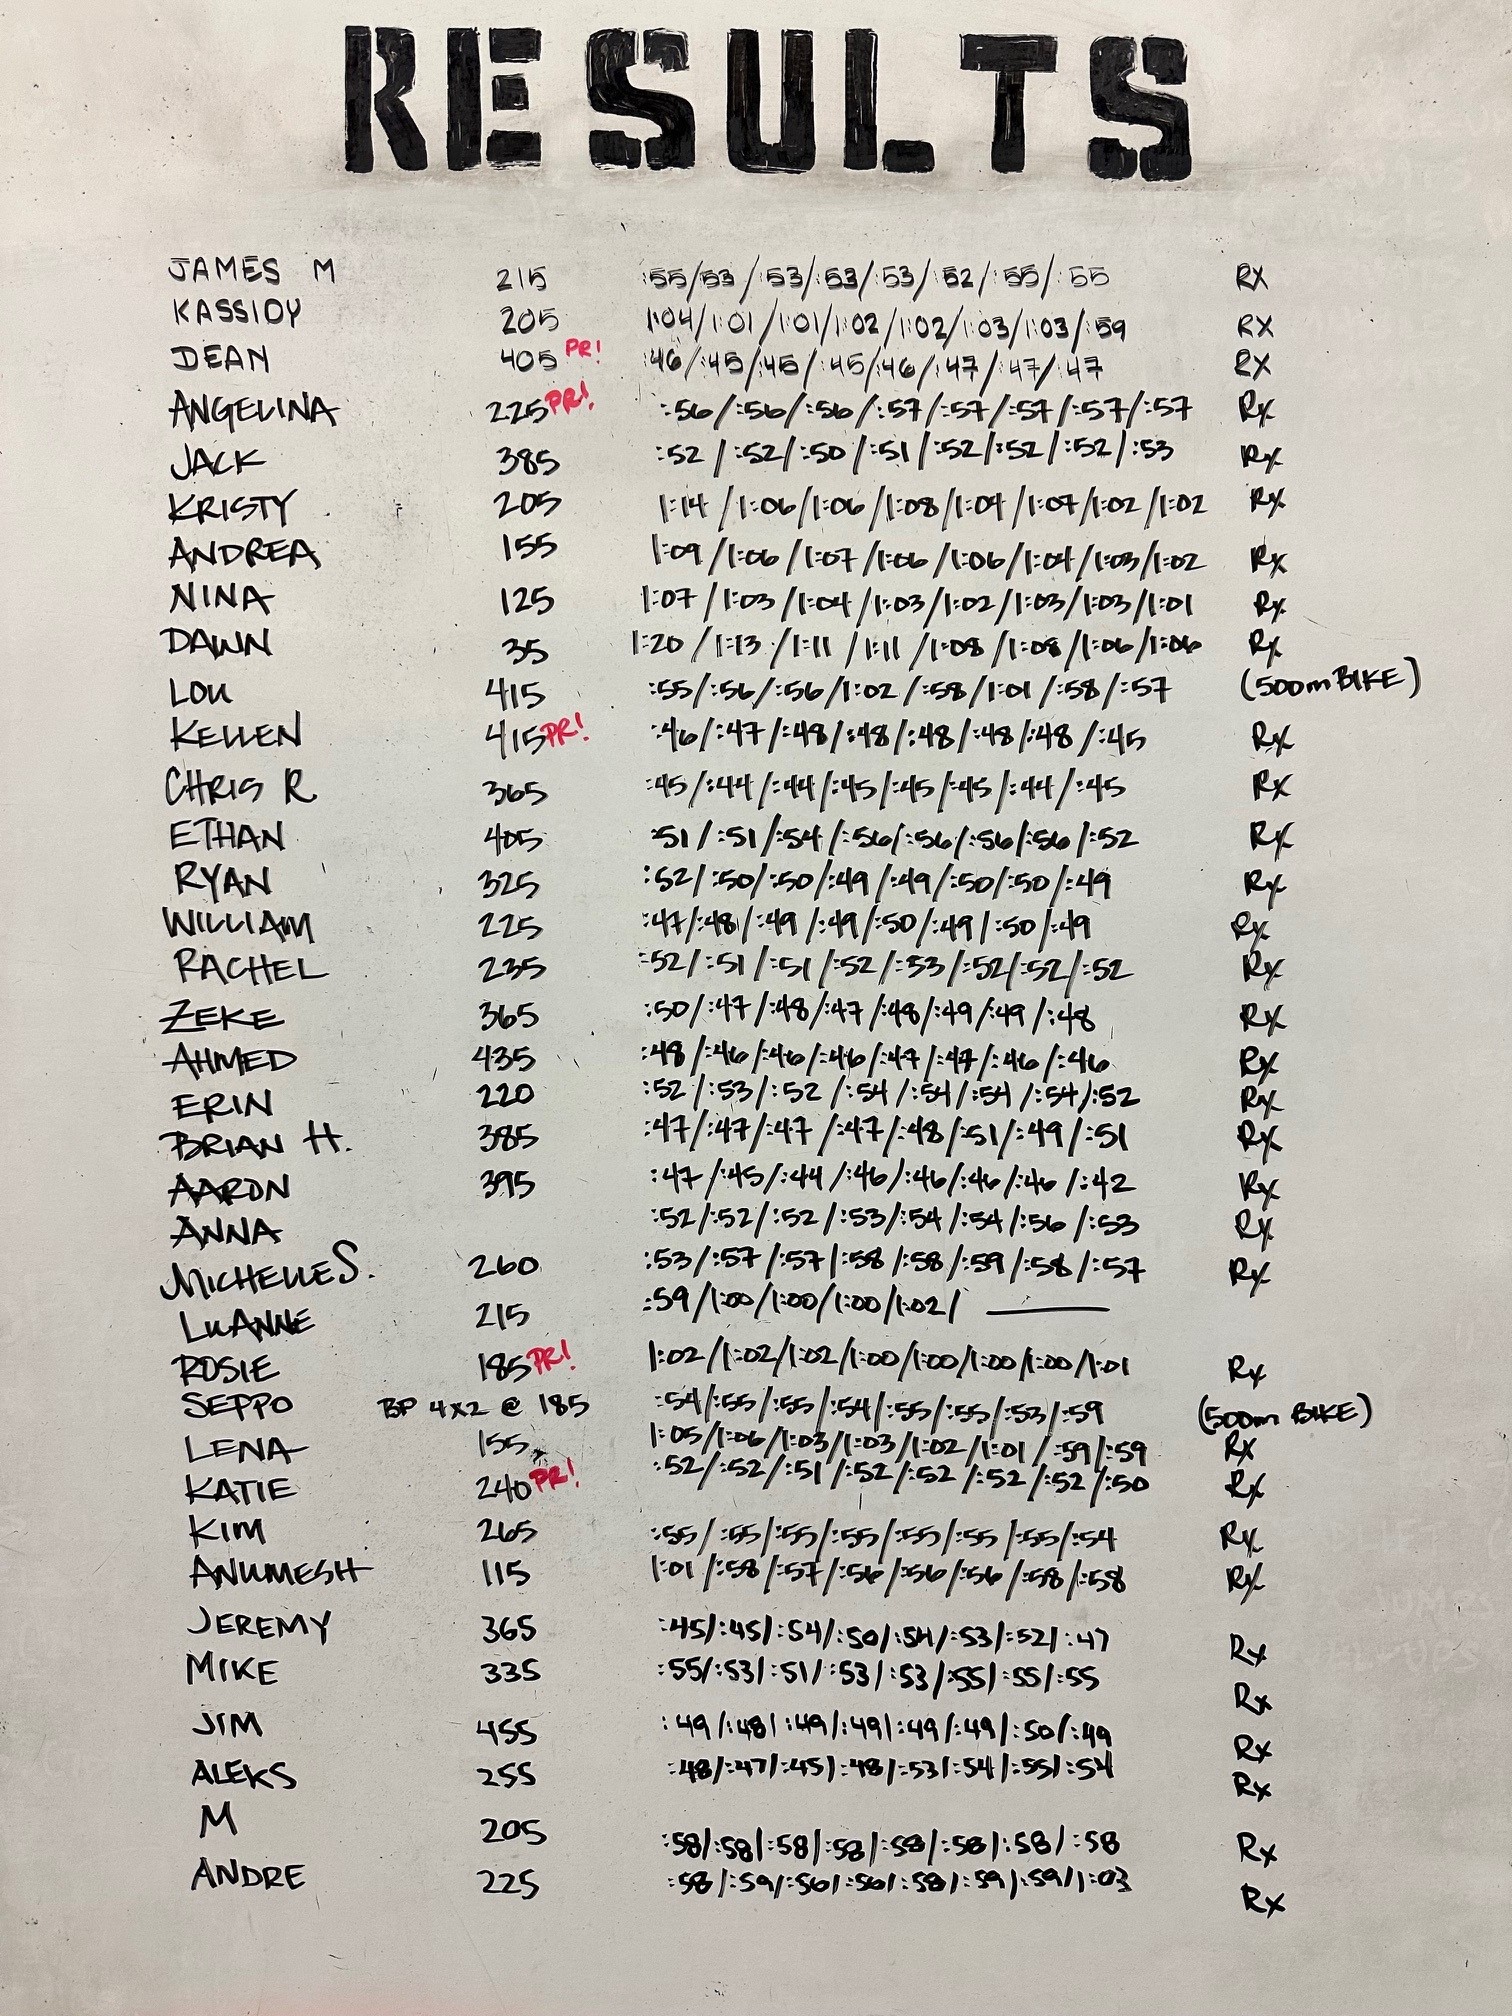 RESULTS
JAMES M 215 :55/53/:53/:53/:53/:52/:55/:55 RX
KASSIDY 205 1:04/1:01/1:01/1:02/1:02/1:03/1:03/:59 RX
DEAN 405 PR! :46/:45/:45/:45/:46/:47/:47/:47 RX
ANGELINA 225 PR! :56/:56/:56/:57/:57/:57/:57/:57 Rx
JACK 385 :52/:52/:50/:51/:52/:52/:52/:53 Rx
KRISTY 205 1:14/1:06/1:06/1:08/1:04/1:07/1:02/1:02 Rx
ANDREA 155 1:09/1:06/1:07/1:06/1:06/1:04/1:03/1:02 Rx
NINA 125 1:07/1:03/1:04/1:03/1:02/1:03/1:03/1:01 Rx
DAWN 35 1:20/1:13/1:11/1:11/1:08/1:08/1:06/1:06 Rx
LOU 415 :55/:56/:56/1:02/:58/1:01/:58/:57 (500m BIKE)
KELLEN 415 PR! :46/:47/:48/:48/:48/:48/:48/:45 Rx
CHRIS R 365 :45/:44/:44/:45/:45/:45/:44/:45 Rx
ETHAN 405 :51/:51/:54/:56/:56/:56/:56/:52 Rx
RYAN 325 :52/:50/:50/:49/:49/:50/:50/:49 Rx
WILLIAM 225 :47/:48/:49/:49/:50/:49/:50/:49 Rx
RACHEL 235 :52/:51/:51/:52/:53/:52/:52/:52 Rx
ZEKE 365 :50/:47/:48/:47/:48/:49/:49/:48 Rx
AHMED 435 :48/:46/:46/:46/:47/:47/:46/:46 Rx
ERIN 220 :52/:53/:52/:54/:54/:54/:54/:52 Rx
BRIAN H. 385 :47/:47/:47/:47/:48/:51/:49/:51 Rx
AARON 395 :47/:45/:44/:46/:46/:46/:46/:42 Rx
ANNA :52/:52/:52/:53/:54/:54/:56/:53 Rx
MICHELLE S. 260 :53/:57/:57/:58/:58/:59/:58/:57 Rx
LUANNE 215 :59/1:00/1:00/1:00/1:02/ ———
ROSIE 185 PR! 1:02/1:02/1:02/1:00/1:00/1:00/1:00/1:01 Rx
SEPPO BP 4x2 @ 185 :54/:55/:55/:54/:55/:55/:53/:59 (500m BIKE)
LENA 155 1:05/1:06/1:03/1:03/1:02/1:01/:59/:59 Rx
KATIE 240 PR! :52/:52/:51/:52/:52/:52/:52/:50 Rx
KIM 265 :55/:55/:55/:55/:55/:55/:55/:54 Rx
ANUMESH 115 1:01/:58/:57/:56/:56/:56/:58/:58 Rx
JEREMY 365 :45/:45/:54/:50/:54/:53/:52/:47 Rx
MIKE 335 :55/:53/:51/:53/:53/:55/:55/:55 Rx
JIM 455 :49/:48/:49/:49/:49/:49/:50/:49 Rx
ALEKS 255 :48/:47/:45/:48/:53/:54/:55/:54 Rx
M 205 :58/:58/:58/:58/:58/:58/:58/:58 Rx
ANDRE 225 :58/:59/:56/:56/:58/:59/:59/1:03 Rx